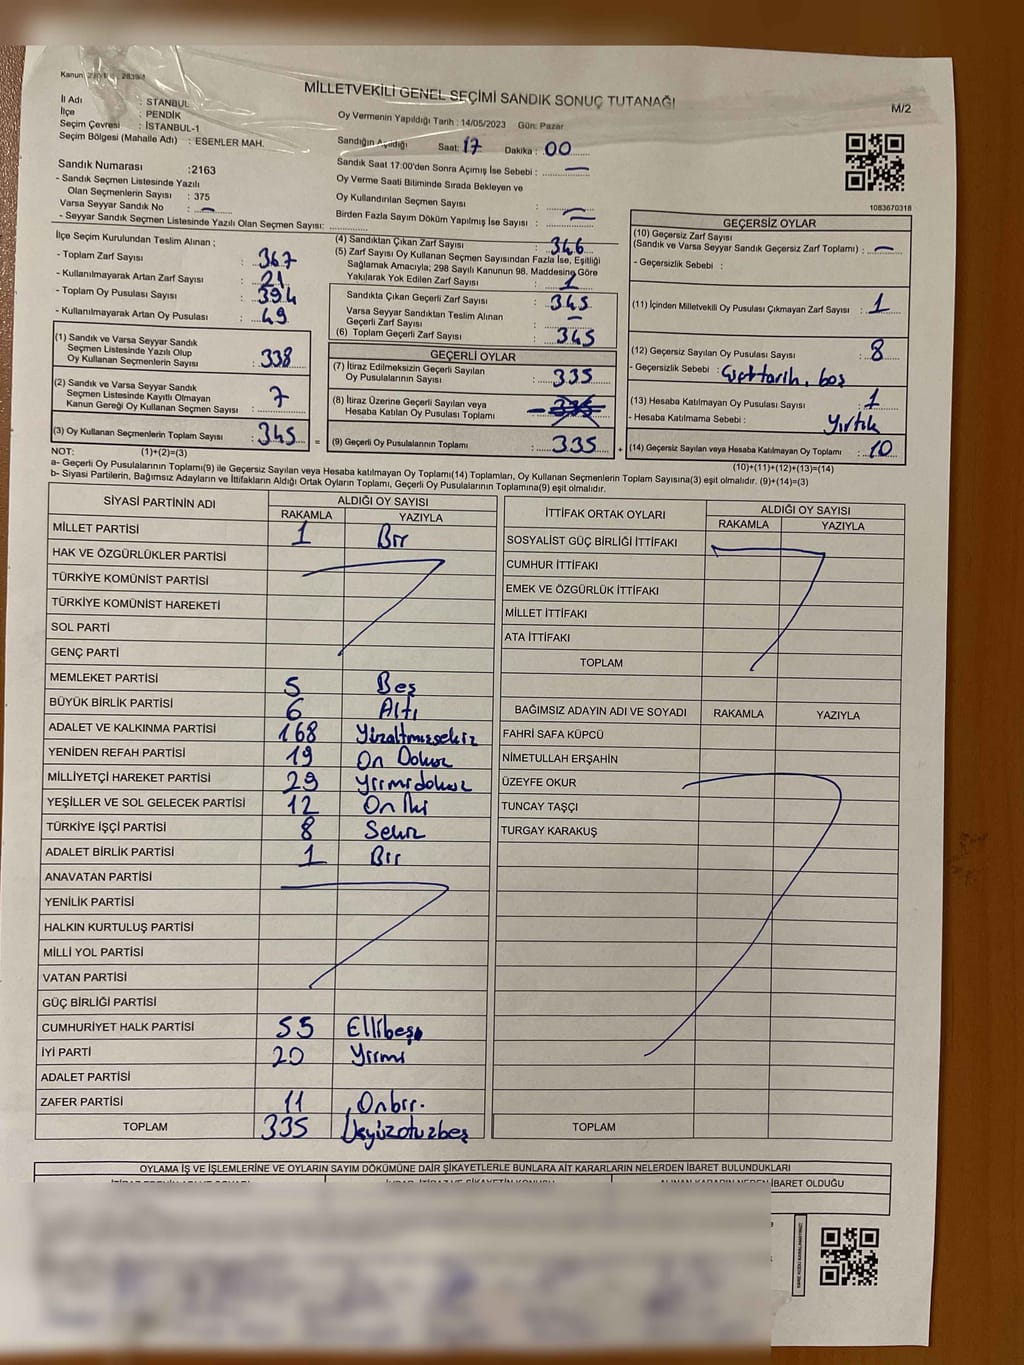 Kanun:
MİLLETVEKİLİ GENEL SEÇİMİ SANDIK SONUÇ TUTANAĞI
M/2
İl Adı : STANBUL
İlçe : PENDİK
Seçim Çevresi : İSTANBUL-1
Seçim Bölgesi (Mahalle Adı) : ESENLER MAH.
Oy Vermenin Yapıldığı Tarih : 14/05/2023 Gün: Pazar
Sandığın Açıldığı Saat: 17 Dakika : 00
Sandık Saat 17:00'den Sonra Açımış İse Sebebi : —
Oy Verme Saati Bitiminde Sırada Bekleyen ve
Oy Kullandırılan Seçmen Sayısı : —
Birden Fazla Sayım Döküm Yapılmış İse Sayısı : —
1083670318
Sandık Numarası :2163
- Sandık Seçmen Listesinde Yazılı
Olan Seçmenlerin Sayısı : 375
Varsa Seyyar Sandık No : —
- Seyyar Sandık Seçmen Listesinde Yazılı Olan Seçmen Sayısı:
İlçe Seçim Kurulundan Teslim Alınan ;
- Toplam Zarf Sayısı : 367
- Kullanılmayarak Artan Zarf Sayısı : 21
- Toplam Oy Pusulası Sayısı : 394
- Kullanılmayarak Artan Oy Pusulası : 49
(1) Sandık ve Varsa Seyyar Sandık
Seçmen Listesinde Yazılı Olup
Oy Kullanan Seçmenlerin Sayısı : 338
(2) Sandık ve Varsa Seyyar Sandık
Seçmen Listesinde Kayıtlı Olmayan
Kanun Gereği Oy Kullanan Seçmen Sayısı : 7
(3) Oy Kullanan Seçmenlerin Toplam Sayısı : 345 =
(4) Sandıktan Çıkan Zarf Sayısı : 346
(5) Zarf Sayısı Oy Kullanan Seçmen Sayısından Fazla İse, Eşitliği
Sağlamak Amacıyla; 298 Sayılı Kanunun 98. Maddesine Göre
Yakılarak Yok Edilen Zarf Sayısı : 1
Sandıkta Çıkan Geçerli Zarf Sayısı : 345
Varsa Seyyar Sandıktan Teslim Alınan
Geçerli Zarf Sayısı : —
(6) Toplam Geçerli Zarf Sayısı : 345
GEÇERLİ OYLAR
(7) İtiraz Edilmeksizin Geçerli Sayılan
Oy Pusulalarının Sayısı : 335
(8) İtiraz Üzerine Geçerli Sayılan veya
Hesaba Katılan Oy Pusulası Toplamı : —
(9) Geçerli Oy Pusulalarının Toplamı : 335 +
GEÇERSİZ OYLAR
(10) Geçersiz Zarf Sayısı
(Sandık ve Varsa Seyyar Sandık Geçersiz Zarf Toplamı) : —
- Geçersizlik Sebebi :
(11) İçinden Milletvekili Oy Pusulası Çıkmayan Zarf Sayısı : 1
(12) Geçersiz Sayılan Oy Pusulası Sayısı : 8
- Geçersizlik Sebebi : boş
(13) Hesaba Katılmayan Oy Pusulası Sayısı : 1
- Hesaba Katılmama Sebebi : Yırtık
(14) Geçersiz Sayılan veya Hesaba Katılmayan Oy Toplamı : 10
NOT: (1)+(2)=(3)
(10)+(11)+(12)+(13)=(14)
a- Geçerli Oy Pusulalarının Toplamı(9) ile Geçersiz Sayılan veya Hesaba katılmayan Oy Toplamı(14) Toplamları, Oy Kullanan Seçmenlerin Toplam Sayısına(3) eşit olmalıdır. (9)+(14)=(3)
b- Siyasi Partilerin, Bağımsız Adayların ve İttifakların Aldığı Ortak Oyların Toplamı, Geçerli Oy Pusulalarının Toplamına(9) eşit olmalıdır.
SİYASİ PARTİNİN ADI ALDIĞI OY SAYISI
RAKAMLA YAZIYLA
MİLLET PARTİSİ 1 Bir
HAK VE ÖZGÜRLÜKLER PARTİSİ
TÜRKİYE KOMÜNİST PARTİSİ
TÜRKİYE KOMÜNİST HAREKETİ
SOL PARTİ
GENÇ PARTİ
MEMLEKET PARTİSİ 5 Beş
BÜYÜK BİRLİK PARTİSİ 6 Altı
ADALET VE KALKINMA PARTİSİ 168 Yüzaltmışsekiz
YENİDEN REFAH PARTİSİ 19 On Dokuz
MİLLİYETÇİ HAREKET PARTİSİ 29 Yirmidokuz
YEŞİLLER VE SOL GELECEK PARTİSİ 12 On İki
TÜRKİYE İŞÇİ PARTİSİ 8 Sekiz
ADALET BİRLİK PARTİSİ 1 Bir
ANAVATAN PARTİSİ
YENİLİK PARTİSİ
HALKIN KURTULUŞ PARTİSİ
MİLLİ YOL PARTİSİ
VATAN PARTİSİ
GÜÇ BİRLİĞİ PARTİSİ
CUMHURİYET HALK PARTİSİ 55 Ellibeş
İYİ PARTİ 20 Yirmi
ADALET PARTİSİ
ZAFER PARTİSİ 11 Onbir.
TOPLAM 335 Üçyüzotuzbeş
İTTİFAK ORTAK OYLARI ALDIĞI OY SAYISI
RAKAMLA YAZIYLA
SOSYALİST GÜÇ BİRLİĞİ İTTİFAKI
CUMHUR İTTİFAKI
EMEK VE ÖZGÜRLÜK İTTİFAKI
MİLLET İTTİFAKI
ATA İTTİFAKI
TOPLAM
BAĞIMSIZ ADAYIN ADI VE SOYADI RAKAMLA YAZIYLA
FAHRİ SAFA KÜPCÜ
NİMETULLAH ERŞAHİN
ÜZEYFE OKUR
TUNCAY TAŞÇI
TURGAY KARAKUŞ
TOPLAM
OYLAMA İŞ VE İŞLEMLERİNE VE OYLARIN SAYIM DÖKÜMÜNE DAİR ŞİKAYETLERLE BUNLARA AİT KARARLARIN NELERDEN İBARET BULUNDUKLARI
İBARET OLDUĞU